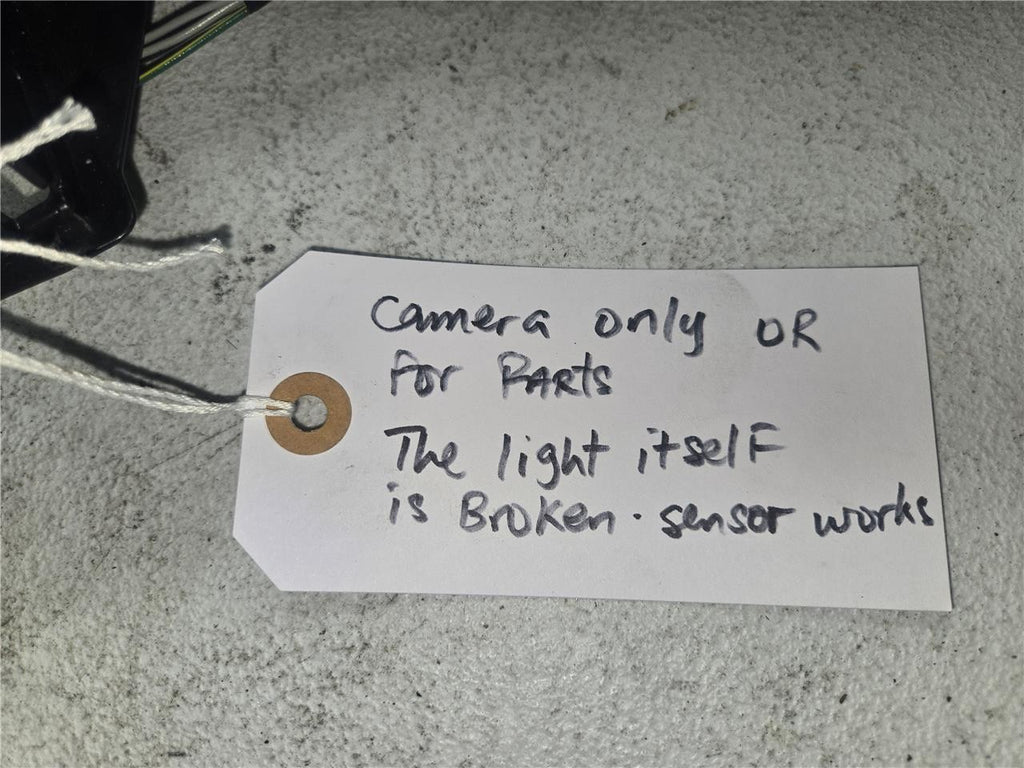 Camera only OR
For PARTs
The light itselF
is Broken. sensor works